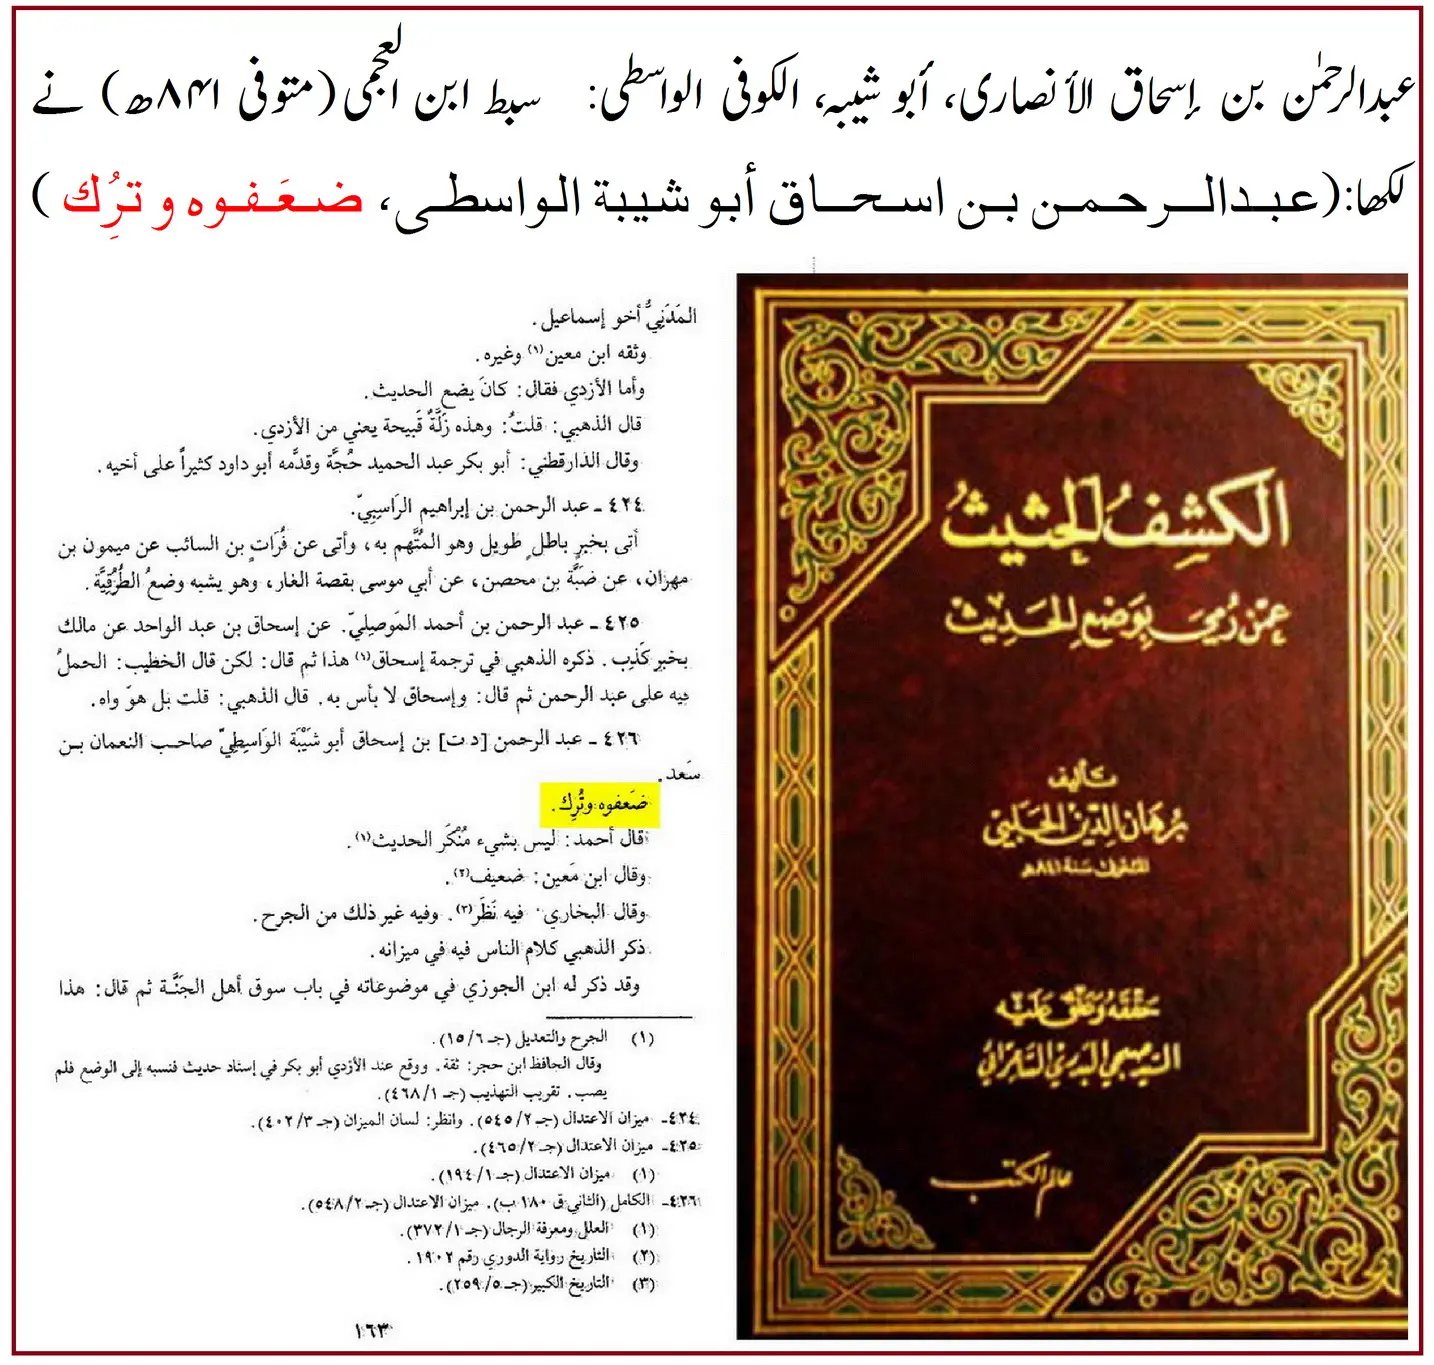 عبدالرحمٰن بن إسحاق الأنصاری، أبو شیبہ، الکوفی الواسطی: سبط ابن العجمی (متوفی ۸۴۱ھ) نے
لکھا: (عبدالرحمن بن اسحاق أبو شيبة الواسطى، ضعَفوه و ترُِك )
المَدَنِيُّ أخو إسماعيل.
وثقه ابن معين(١) وغيره.
وأما الأزدي فقال: كانَ يضع الحديث.
قال الذهبي: قلتُ: وهذه زَلَّةٌ قَبيحة يعني من الأزدي.
وقال الدارقطني: أبو بكر عبد الحميد حُجَّة وقدَّمه أبو داود كثيراً على أخيه.
٤٢٤ ـ عبد الرحمن بن إبراهيم الرَاسِبِيّ.
أتى بخبرٍ باطلٍ طويل وهو المُتَّهم به، وأتى عن فُرَاتٍ بن السائب عن ميمون بن
مهران، عن ضبَّة بن محصن، عن أبي موسى بقصة الغار، وهو يشبه وضعُ الطُرُقِيَّة.
٤٢٥ ـ عبد الرحمن بن أحمد المَوصِليّ. عن إسحاق بن عبد الواحد عن مالك
بخبر كَذِب. ذكره الذهبي في ترجمة إسحاق(١) هذا ثم قال: لكن قال الخطيب: الحملُ
فيه على عبد الرحمن ثم قال: وإسحاق لا بأس به. قال الذهبي: قلت بل هوَ واه.
٤٢٦ ـ عبد الرحمن [د.ت] بن إسحاق أبو شَيْبَة الوَاسِطِيّ صاحب النعمان بن
سَعد.
ضَعفوه وتُرِك.
قال أحمد: ليس بشيء مُنْكَر الحديث(١).
وقال ابن مَعين: ضعيف(٢).
وقال البخاري: فيه نَظَر(٣). وفيه غير ذلك من الجرح.
ذكر الذهبي كلام الناس فيه في ميزانه.
وقد ذكر له ابن الجوزي في موضوعاته في باب سوق أهل الجَنَّة ثم قال: هذا
(١) الجرح والتعديل (جـ ١٥/٦).
وقال الحافظ ابن حجر: ثقة. ووقع عند الأزدي أبو بكر في إسناد حديث فنسبه إلى الوضع فلم
يصب. تقريب التهذيب (جـ ٤٦٨/١).
٤٢٤ـ ميزان الاعتدال (جـ ٥٤٥/٢). وانظر: لسان الميزان (جـ ٤٠٢/٣).
٤٢٥ـ ميزان الاعتدال (جـ ٤٦٥/٢).
(١) ميزان الاعتدال (جـ ١٩٤/١).
٤٢٦ـ الكامل (الثاني ق ١٨٠ ب). ميزان الاعتدال (جـ ٥٤٨/٢).
(١) العلل ومعرفة الرجال (جـ ٣٧٢/١).
(٢) التاريخ رواية الدوري رقم ١٩٠٢.
(٣) التاريخ الكبير (جـ ٢٥٩/٥).
١٦٣
الكشف الحثيث
عمن رُمي بوضع الحديث
تأليف
برهان الدين الحلبي
المتوفى سنة ٨٤١هـ
حققه وعلق عليه
السيد صبحي البدري السامرائي
عالم الكتب